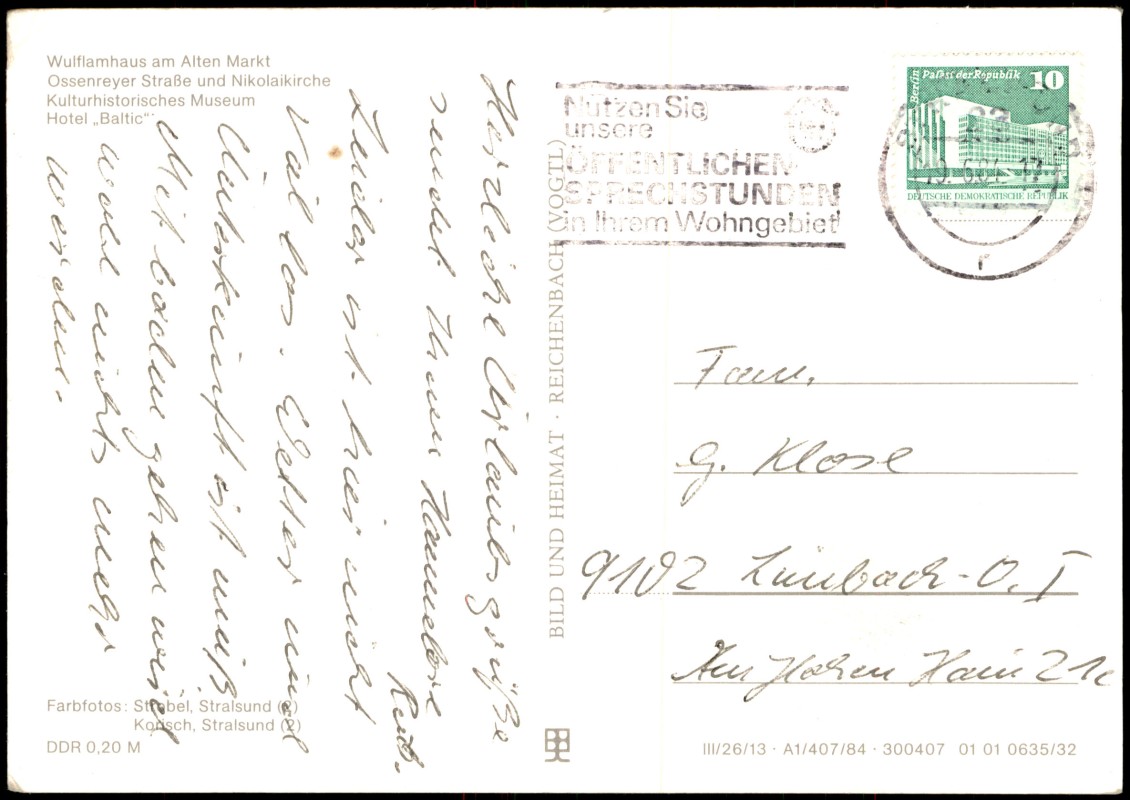 Wulflamhaus am Alten Markt
Ossenreyer Straße und Nikolaikirche
Kulturhistorisches Museum
Hotel „Baltic“
Herzliche Urlaubsgrüße
sendet Ihnen
Leider ist hier nicht
Wetter und
Unterkunft ist
Mit baden gehen wird
wohl nichts mehr
werden.
Farbfotos: Striebel, Stralsund
Korisch, Stralsund (2)
DDR 0,20 M
BILD UND HEIMAT · REICHENBACH (VOGTL)
Nutzen Sie
unsere
ÖFFENTLICHEN
SPRECHSTUNDEN
in Ihrem Wohngebiet!
Berlin Palast der Republik 10
DEUTSCHE DEMOKRATISCHE REPUBLIK
Fam.
G. Klose
9102 Limbach-O. I
Am Hohen Hain 21c
III/26/13 · A1/407/84 · 300407 01 01 0635/32